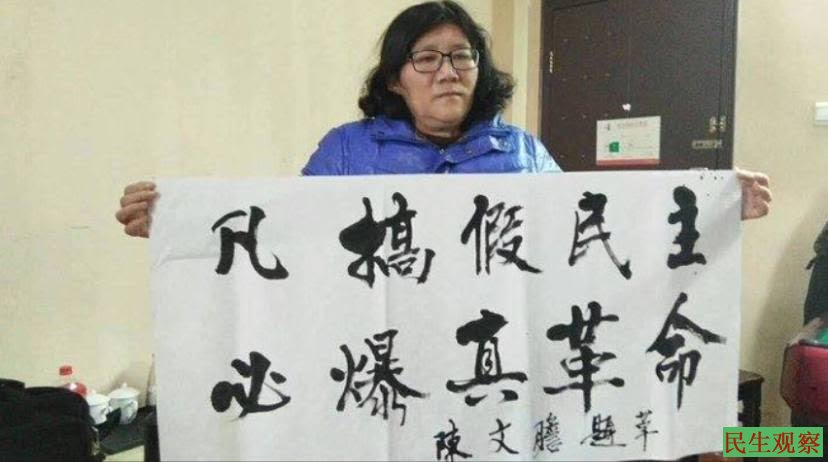 凡搞假民主
必爆真革命
陳文瞻題
民生观察